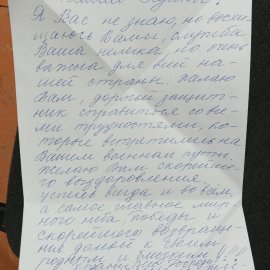 Я Вас не знаю, но восхи-
щаюсь Вами, служба
Ваша нелегка, но очень
важна для всей на-
шей страны. Желаю
Вам, дорогой защит-
ник справиться со все-
ми трудностями, ко-
торые встретились на
Вашем военном пути.
Желаю Вам скорейше-
го выздоровления,
успехов всегда и во всём,
а самое главное мир-
ного неба, победы и
скорейшего возвраще-
ния домой к своим
родным и близким!!!